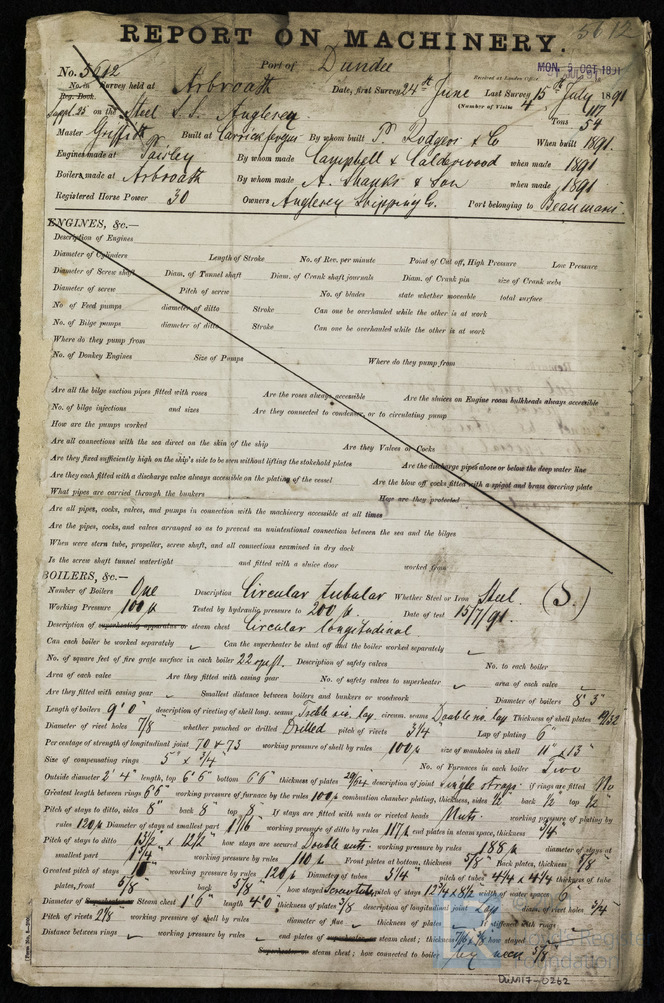 5612
REPORT ON MACHINERY.
Port of Dundee
No. 5612
Received at London Office MON. 5 OCT 1891
No. in Reg. Book. Survey held at Arbroath Date, first Survey 24th June Last Survey 15th July 1891
(Number of Visits 4)
Suppt 25 on the Steel S.S. Anglesey Tons 54
Master Griffith Built at Carrickfergus By whom built P. Rodgers & Co When built 1891.
Engines made at Paisley By whom made Campbell & Calderwood when made 1891
Boilers made at Arbroath By whom made A. Shanks & Son when made 1891
Registered Horse Power 30 Owners Anglesey Shipping Co. Port belonging to Beaumaris.
ENGINES, &c.—
Description of Engines
Diameter of Cylinders Length of Stroke No. of Rev. per minute Point of Cut off, High Pressure Low Pressure
Diameter of Screw shaft Diam. of Tunnel shaft Diam. of Crank shaft journals Diam. of Crank pin size of Crank webs
Diameter of screw Pitch of screw No. of blades state whether moveable total surface
No. of Feed pumps diameter of ditto Stroke Can one be overhauled while the other is at work
No. of Bilge pumps diameter of ditto Stroke Can one be overhauled while the other is at work
Where do they pump from
No. of Donkey Engines Size of Pumps Where do they pump from
Are all the bilge suction pipes fitted with roses Are the roses always accessible Are the sluices on Engine room bulkheads always accessible
No. of bilge injections and sizes Are they connected to condenser, or to circulating pump
How are the pumps worked
Are all connections with the sea direct on the skin of the ship Are they Valves or Cocks
Are they fixed sufficiently high on the ship's side to be seen without lifting the stokehold plates Are the discharge pipes above or below the deep water line
Are they each fitted with a discharge valve always accessible on the plating of the vessel Are the blow off cocks fitted with a spigot and brass covering plate
What pipes are carried through the bunkers How are they protected
Are all pipes, cocks, valves, and pumps in connection with the machinery accessible at all times
Are the pipes, cocks, and valves arranged so as to prevent an unintentional connection between the sea and the bilges
When were stern tube, propeller, screw shaft, and all connections examined in dry dock
Is the screw shaft tunnel watertight and fitted with a sluice door worked from
BOILERS, &c.—
Number of Boilers One Description Circular tubular Whether Steel or Iron Steel (S.)
Working Pressure 100 lb Tested by hydraulic pressure to 200 lb. Date of test 15/7/91.
Description of superheating apparatus or steam chest Circular longitudinal
Can each boiler be worked separately Can the superheater be shut off and the boiler worked separately
No. of square feet of fire grate surface in each boiler 22 sq ft. Description of safety valves No. to each boiler
Area of each valve Are they fitted with easing gear No. of safety valves to superheater area of each valve
Are they fitted with easing gear Smallest distance between boilers and bunkers or woodwork Diameter of boilers 8' 3"
Length of boilers 9' 0" description of riveting of shell long. seams Treble riv. lap. circum. seams Double riv. lap Thickness of shell plates 19/32
Diameter of rivet holes 7/8" whether punched or drilled Drilled pitch of rivets 3 1/4 Lap of plating 6"
Per centage of strength of longitudinal joint 70 & 73 working pressure of shell by rules 100 lb size of manholes in shell 11" x 15"
Size of compensating rings 5" x 3/4" No. of Furnaces in each boiler Two
Outside diameter 2' 4" length, top 6' 6" bottom 6' 6" thickness of plates 29/64 description of joint Single straps. if rings are fitted No
Greatest length between rings 6' 6" working pressure of furnace by the rules 100 lb combustion chamber plating, thickness, sides 1/2" back 1/2" top 1/2"
Pitch of stays to ditto, sides 8" back 8" top 8" If stays are fitted with nuts or riveted heads Nuts. working pressure of plating by
rules 120 lb Diameter of stays at smallest part 1 1/16" working pressure of ditto by rules 117 lb end plates in steam space, thickness 3/4
Pitch of stays to ditto 13 1/2 x 12 1/2" how stays are secured Double nuts. working pressure by rules 188 lb diameter of stays at
smallest part 1 3/4" working pressure by rules 110 lb Front plates at bottom, thickness 5/8" Back plates, thickness 5/8"
Greatest pitch of stays working pressure by rules 120 lb Diameter of tubes 3 1/4" pitch of tubes 4 3/4 x 4 3/4 thickness of tube
plates, front 5/8 back 5/8" how stayed Screw tubes pitch of stays width of water spaces 6"
Diameter of Superheater or Steam chest 1' 6" length 4' 0 thickness of plates 3/8 description of longitudinal joint Lap diam. of rivet holes 3/4"
Pitch of rivets 2 3/8 working pressure of shell by rules diameter of flue thickness if stiffened with rings
Distance between rings working pressure by rules end plates of superheater or steam chest; thickness how stayed
Superheater or steam chest; how connected to boiler by neck 5/8
[Form No. 8
DUN17-0262